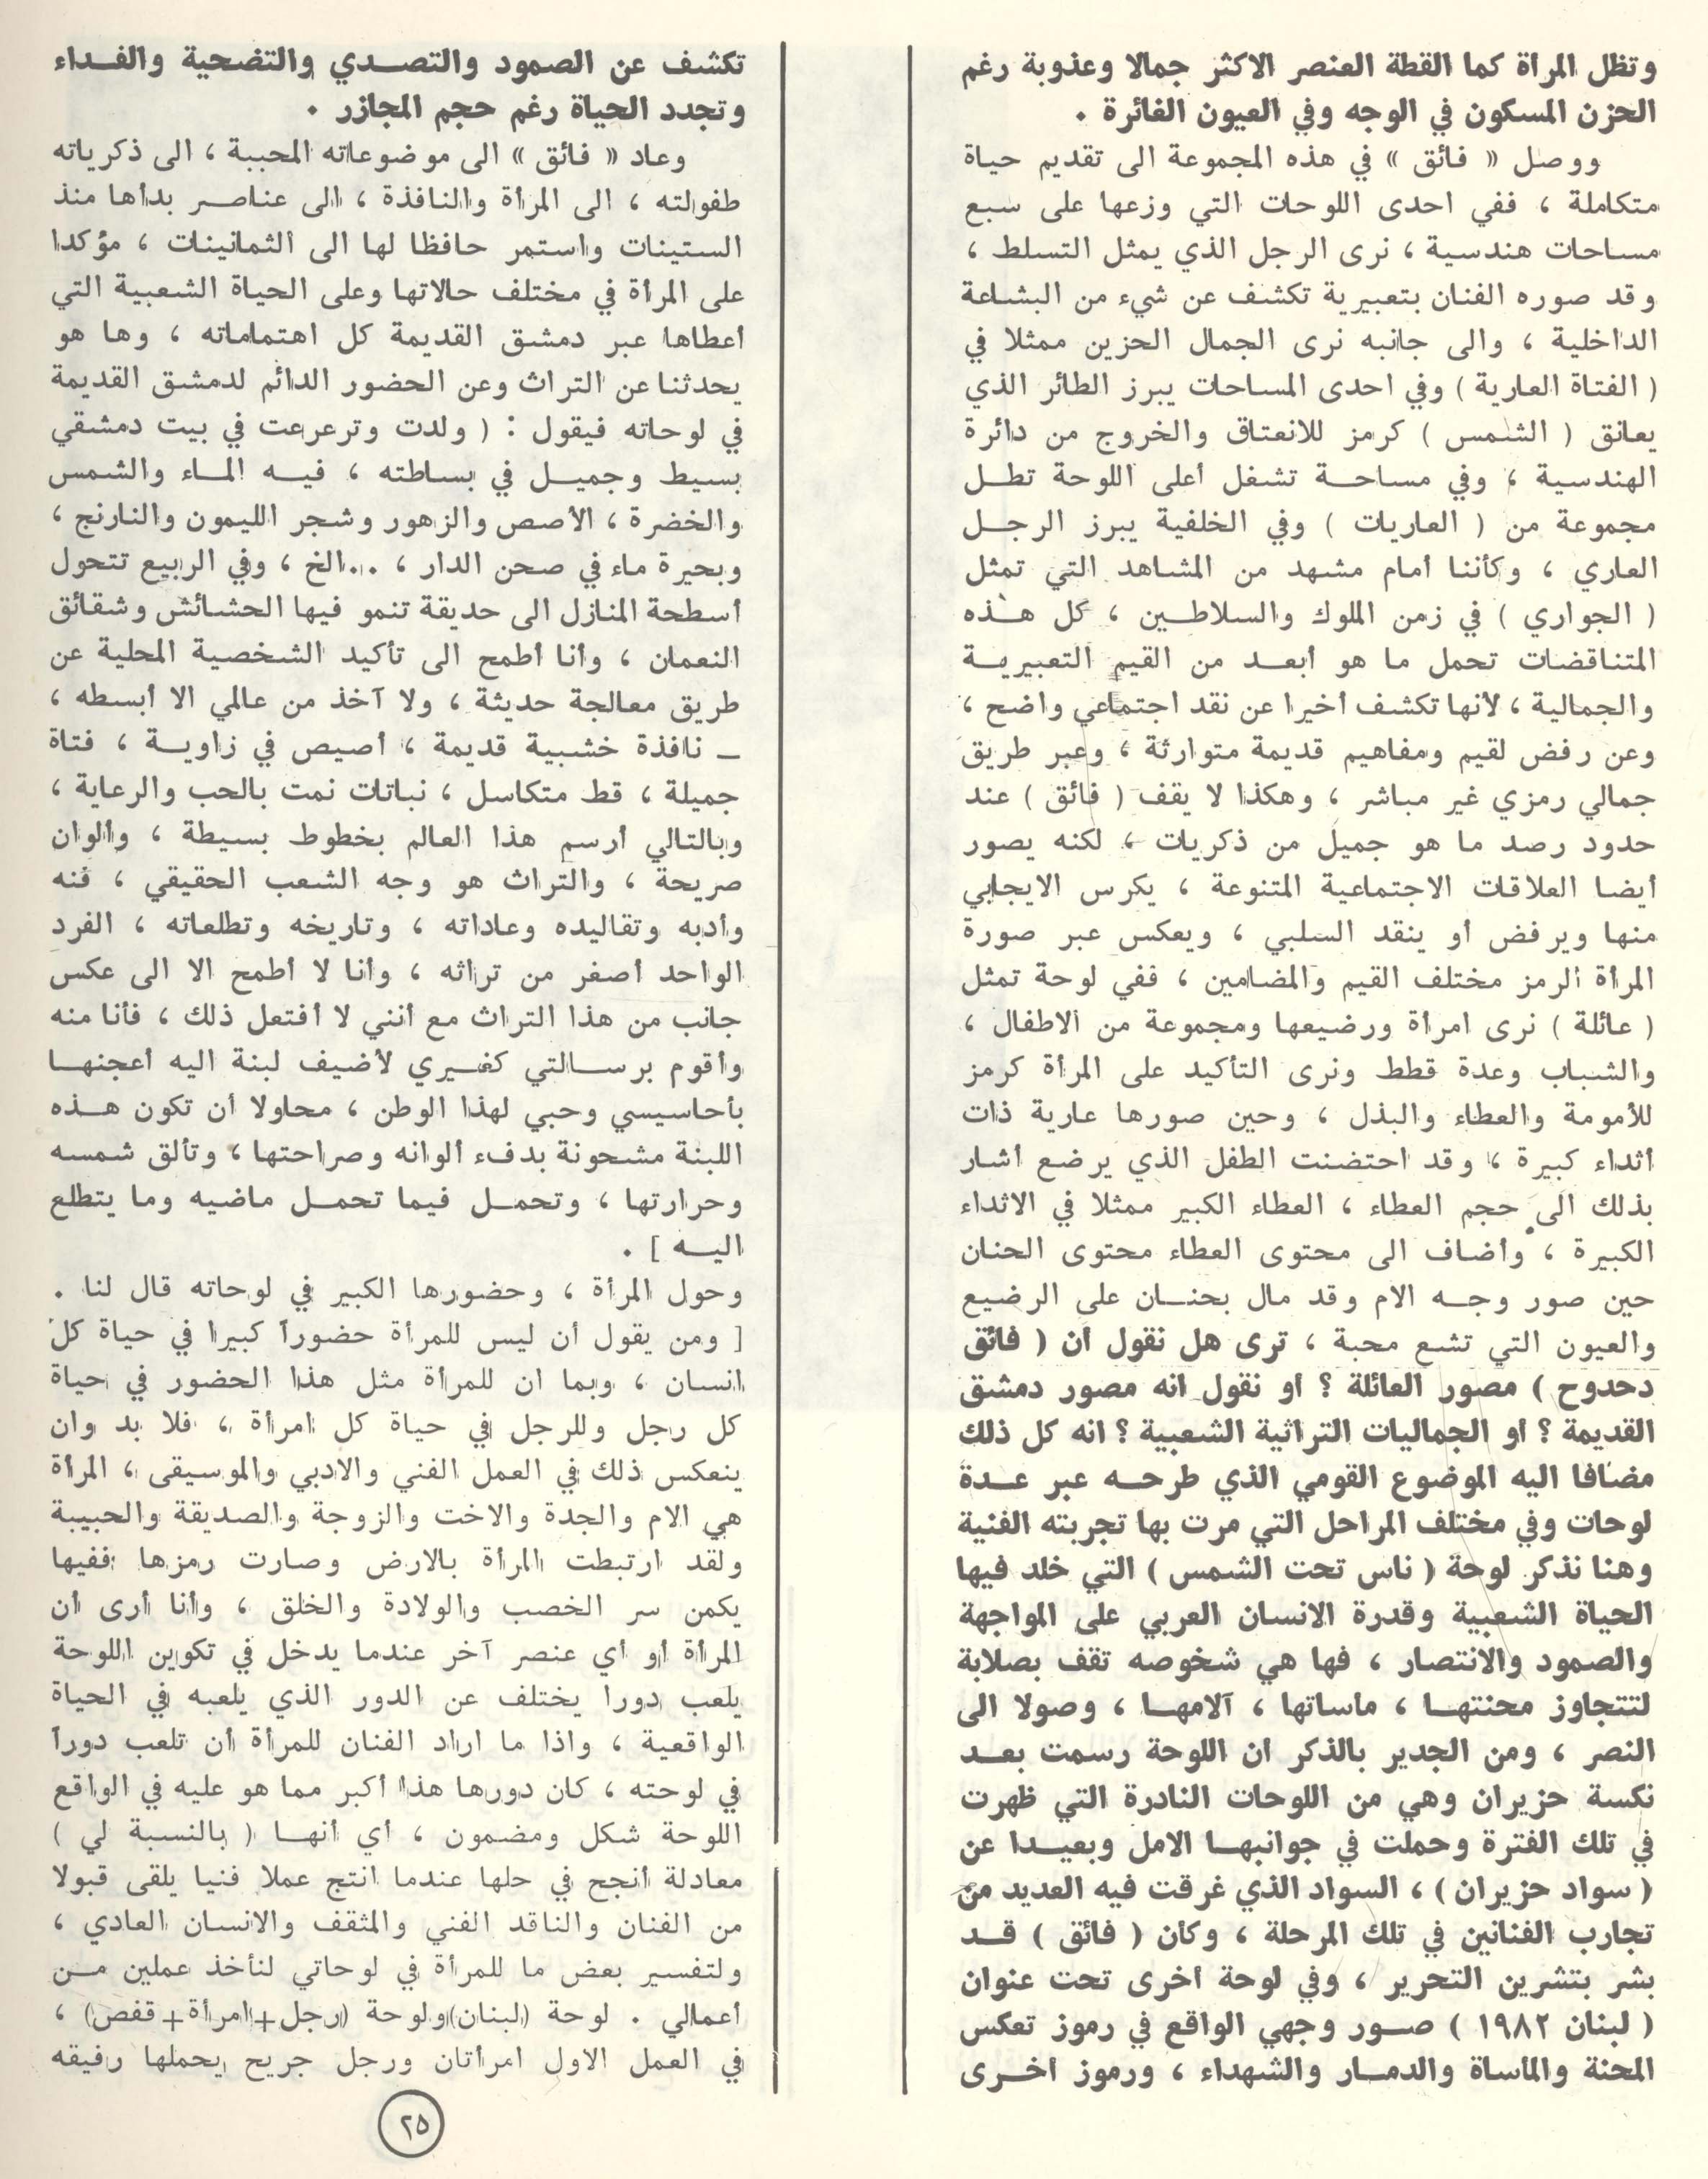 وتظل المرأة كما القطة العنصر الاكثر جمالا وعذوبة رغم
الحزن المسكون في الوجه وفي العيون الفائرة .
ووصل « فائق » في هذه المجموعة الى تقديم حياة
متكاملة ، ففي احدى اللوحات التي وزعها على سبع
مساحات هندسية ، نرى الرجل الذي يمثل التسلط ،
وقد صوره الفنان بتعبيرية تكشف عن شيء من البشاعة
الداخلية ، والى جانبه نرى الجمال الحزين ممثلا في
( الفتاة العارية ) وفي احدى المساحات يبرز الطائر الذي
يعانق ( الشمس ) كرمز للانعتاق والخروج من دائرة
الهندسية ، وفي مساحة تشغل أعلى اللوحة تطل
مجموعة من ( العاريات ) وفي الخلفية يبرز الرجل
العاري ، وكأننا أمام مشهد من المشاهد التي تمثل
( الجواري ) في زمن الملوك والسلاطين ، كل هذه
المتناقضات تحمل ما هو أبعد من القيم التعبيرية
والجمالية ، لأنها تكشف أخيرا عن نقد اجتماعي واضح ،
وعن رفض لقيم ومفاهيم قديمة متوارثة ، وعبر طريق
جمالي رمزي غير مباشر ، وهكذا لا يقف ( فائق ) عند
حدود رصد ما هو جميل من ذكريات ، لكنه يصور
أيضا العلاقات الاجتماعية المتنوعة ، يكرس الايجابي
منها ويرفض أو ينقد السلبي ، ويعكس عبر صورة
المرأة الرمز مختلف القيم والمضامين ، ففي لوحة تمثل
( عائلة ) نرى امرأة ورضيعها ومجموعة من الاطفال ،
والشباب وعدة قطط ونرى التأكيد على المرأة كرمز
للأمومة والعطاء والبذل ، وحين صورها عارية ذات
أثداء كبيرة ، وقد احتضنت الطفل الذي يرضع أشار
بذلك الى حجم العطاء ، العطاء الكبير ممثلا في الاثداء
الكبيرة ، وأضاف الى محتوى العطاء محتوى الحنان
حين صور وجه الام وقد مال بحنان على الرضيع
والعيون التي تشع محبة ، ترى هل نقول أن ( فائق
دحدوح ) مصور العائلة ؟ أو نقول انه مصور دمشق
القديمة ؟ أو الجماليات التراثية الشعبية ؟ انه كل ذلك
مضافا اليه الموضوع القومي الذي طرحه عبر عدة
لوحات وفي مختلف المراحل التي مرت بها تجربته الفنية
وهنا نذكر لوحة ( ناس تحت الشمس ) التي خلد فيها
الحياة الشعبية وقدرة الانسان العربي على المواجهة
والصمود والانتصار ، فها هي شخوصه تقف بصلابة
لتتجاوز محنتها ، مأساتها ، آلامها ، وصولا الى
النصر ، ومن الجدير بالذكر أن اللوحة رسمت بعد
نكسة حزيران وهي من اللوحات النادرة التي ظهرت
في تلك الفترة وحملت في جوانبها الامل وبعيدا عن
( سواد حزيران ) ، السواد الذي غرقت فيه العديد من
تجارب الفنانين في تلك المرحلة ، وكأن ( فائق ) قد
بشر بتشرين التحرير ، وفي لوحة أخرى تحت عنوان
( لبنان ١٩٨٢ ) صور وجهي الواقع في رموز تعكس
المحنة والمأساة والدمار والشهداء ، ورموز أخرى
تكشف عن الصمود والتصدي والتضحية والفداء
وتجدد الحياة رغم حجم المجازر .
وعاد « فائق » الى موضوعاته المحببة ، الى ذكرياته
طفولته ، الى المرأة والنافذة ، الى عناصر بدأها منذ
الستينات واستمر حافظا لها الى الثمانينات ، مؤكدا
على المرأة في مختلف حالاتها وعلى الحياة الشعبية التي
أعطاها عبر دمشق القديمة كل اهتماماته ، وها هو
يحدثنا عن التراث وعن الحضور الدائم لدمشق القديمة
في لوحاته فيقول : ( ولدت وترعرعت في بيت دمشقي
بسيط وجميل في بساطته ، فيه الماء والشمس
والخضرة ، الأصص والزهور وشجر الليمون والنارنج ،
وبحيرة ماء في صحن الدار ، ...الخ ، وفي الربيع تتحول
أسطحة المنازل الى حديقة تنمو فيها الحشائش وشقائق
النعمان ، وأنا أطمح الى تأكيد الشخصية المحلية عن
طريق معالجة حديثة ، ولا آخذ من عالمي الا أبسطه ،
ـ نافذة خشبية قديمة ، أصيص في زاوية ، فتاة
جميلة ، قط متكاسل ، نباتات نمت بالحب والرعاية ،
وبالتالي أرسم هذا العالم بخطوط بسيطة ، وألوان
صريحة ، والتراث هو وجه الشعب الحقيقي ، فنه
وأدبه وتقاليده وعاداته ، وتاريخه وتطلعاته ، الفرد
الواحد أصغر من تراثه ، وأنا لا أطمح الا الى عكس
جانب من هذا التراث مع أنني لا أفتعل ذلك ، فأنا منه
وأقوم برسالتي كغيري لأضيف لبنة اليه أعجنها
بأحاسيسي وحبي لهذا الوطن ، محاولا أن تكون هذه
اللبنة مشحونة بدفء ألوانه وصراحتها ، وتألق شمسه
وحرارتها ، وتحمل فيما تحمل ماضيه وما يتطلع
اليه ] .
وحول المرأة ، وحضورها الكبير في لوحاته قال لنا .
[ ومن يقول أن ليس للمرأة حضوراً كبيرا في حياة كل
انسان ، وبما ان للمرأة مثل هذا الحضور في حياة
كل رجل وللرجل في حياة كل امرأة ، فلا بد وان
ينعكس ذلك في العمل الفني والادبي والموسيقى ، المرأة
هي الام والجدة والاخت والزوجة والصديقة والحبيبة
ولقد ارتبطت المرأة بالارض وصارت رمزها ففيها
يكمن سر الخصب والولادة والخلق ، وأنا أرى أن
المرأة أو أي عنصر آخر عندما يدخل في تكوين اللوحة
يلعب دورا يختلف عن الدور الذي يلعبه في الحياة
الواقعية ، واذا ما اراد الفنان للمرأة أن تلعب دوراً
في لوحته ، كان دورها هذا أكبر مما هو عليه في الواقع
اللوحة شكل ومضمون ، أي أنها ( بالنسبة لي )
معادلة أنجح في حلها عندما انتج عملا فنيا يلقى قبولا
من الفنان والناقد الفني والمثقف والانسان العادي ،
ولتفسير بعض ما للمرأة في لوحاتي لنأخذ عملين من
أعمالي . لوحة (لبنان)ولوحة (رجل+امرأة+قفص) ،
في العمل الاول امرأتان ورجل جريح يحملها رفيقه
٢٥